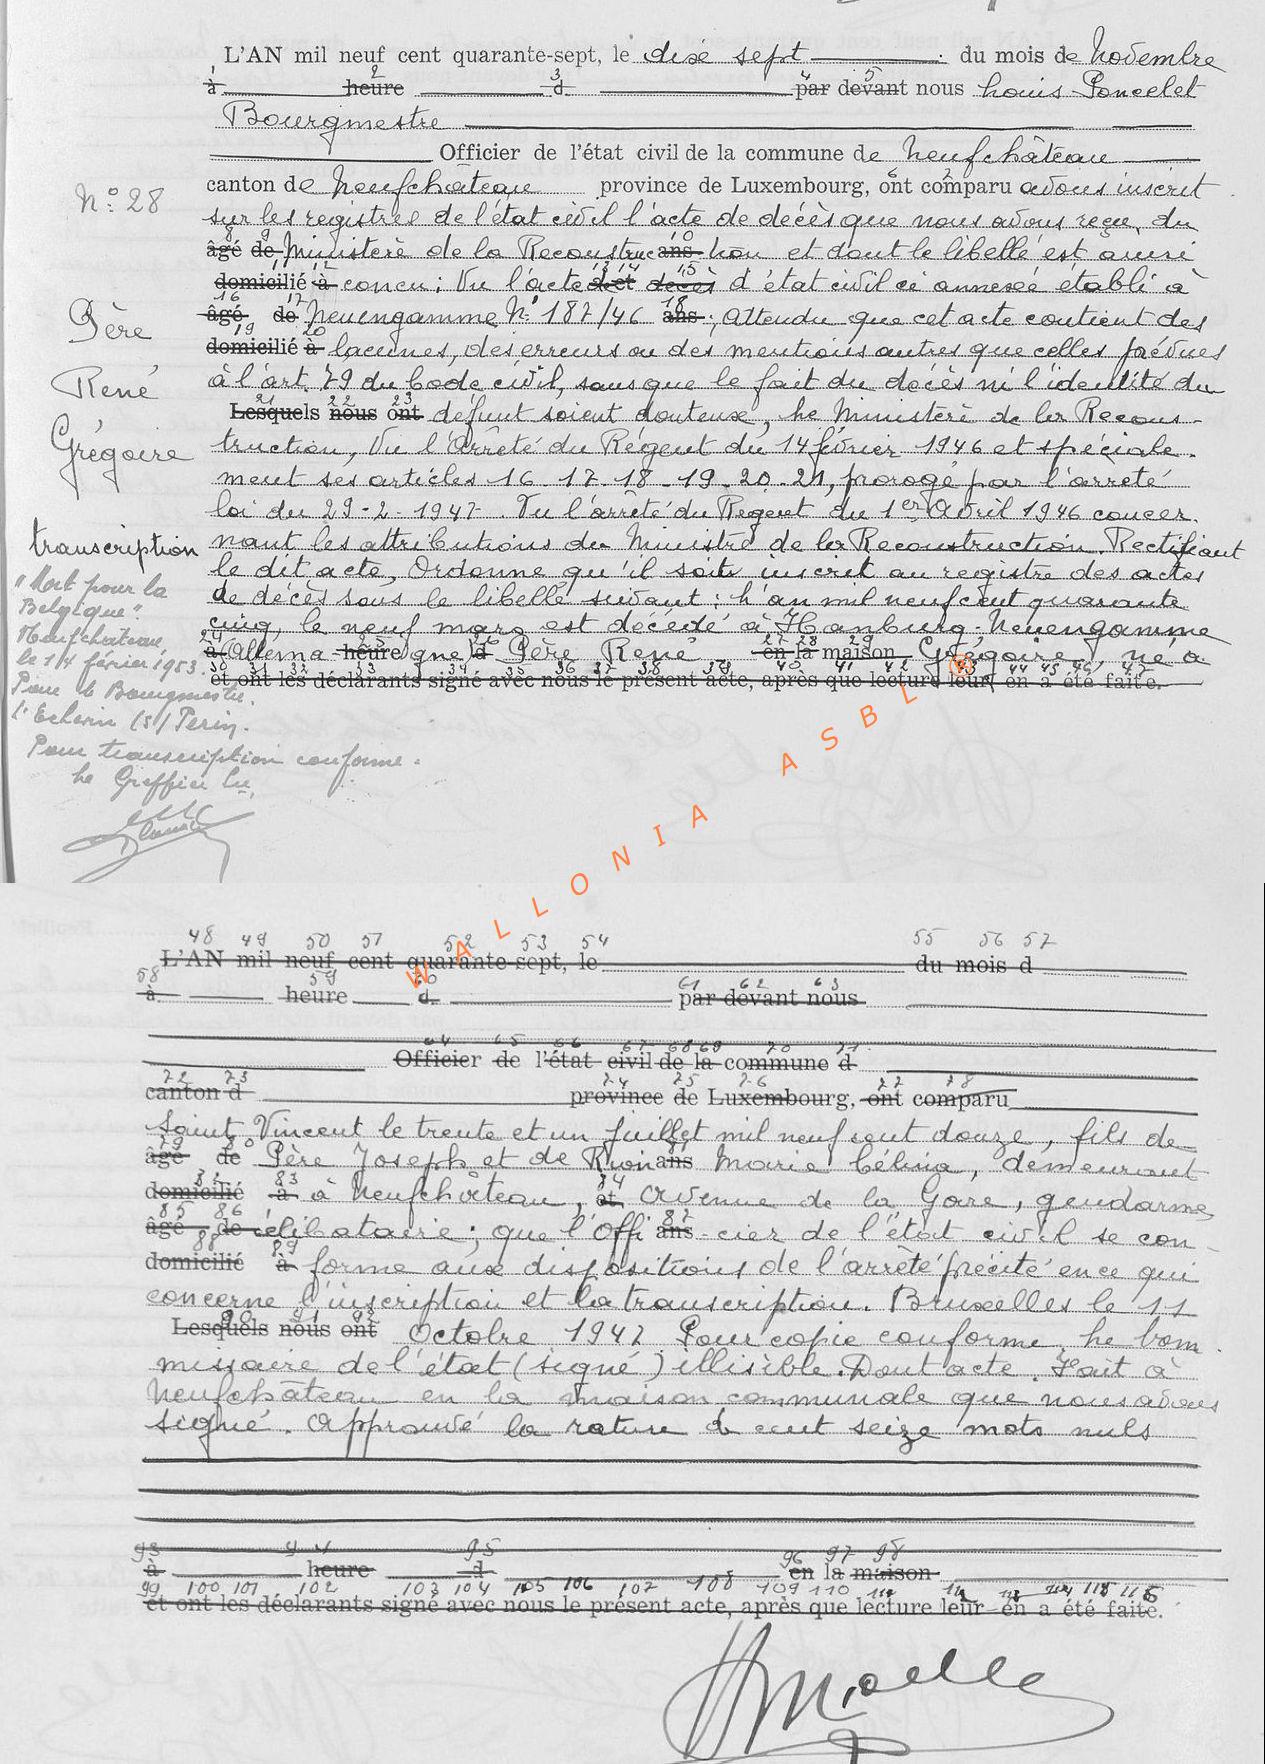 L'AN mil neuf cent quarante-sept, le dix sept du mois de Novembre
à heure d par devant nous Louis Poncelet
Bourgmestre
Officier de l'état civil de la commune de Neufchâteau
canton de Neufchâteau province de Luxembourg, ont comparu avons inscrit
sur les registres de l'état civil l'acte de décès que nous avons reçu, du
âgé de Ministère de la Reconstruc ans tion et dont le libellé est ainsi
domicilié à concu : Vu l'acte d'état civil ci annexée établi à
âgé de Neuengamme N° 187/46 ans ; Attendu que cet acte contient des
domicilié à lacunes, des erreurs ou des mentions autres que celles prévues
à l'art. 79 du Code civil, sans que le fait du décès ni l'identité du
Lesquels nous ont défunt soient douteux, Le Ministère de la Recons-
truction, Vu l'Arrêté du Régent du 14 février 1946 et spéciale-
ment ses articles 16-17-18-19-20-21, prorogé par l'arrêté
loi du 29-2-1947. Vu l'arrêté du Régent du 1er Avril 1946 concer-
nant les attributions du Ministre de la Reconstruction. Rectifiant
le dit acte, Ordonne qu'il soit inscrit au registre des actes
de décès sous le libellé suivant : L'an mil neuf cent quarante
cinq, le neuf mars est décédé à Hamburg-Neuengamme
à Allema heure gne d Père René en la maison Grégoire, né à
et ont les déclarants signé avec nous le présent acte, après que lecture leur en a été faite.
N° 28
Père
René
Grégoire
transcription
"Mort pour la
Belgique"
Neufchâteau,
le 14 février 1953
Pour le Bourgmestre.
l'Echevin (s) Perin.
Pour transcription conforme.
Le Greffier
WALLONIA ASBL ®
48 49 50 51 52 53 54 55 56 57
L'AN mil neuf cent quarante-sept, le du mois d
58 59 60 61 62 63
à heure d par devant nous
64 65 66 67 68 69 70 71
Officier de l'état civil de la commune d
72 73 74 75 76 77 78
canton d province de Luxembourg, ont comparu
Saint Vincent le trente et un Juillet mil neuf cent douze, fils de
âgé de Père Joseph et de ans Marie Célina, demeurant
domicilié à à Neufchâteau, et Avenue de la Gare, gendarme,
âgé de célibataire ; que l'Offi ans cier de l'état civil se con-
domicilié à forme aux dispositions de l'arrêté précité en ce qui
concerne l'inscription et la transcription. Bruxelles le 11
Lesquels nous ont Octobre 1947 Pour copie conforme, Le Com-
missaire de l'état (signé) illisible. Dont acte. Fait à
Neufchâteau en la maison communale que nous avons
signé. Approuvé la rature de cent seize mots nuls
93 94 95 96 97 98
à heure d en la maison
99 100 101 102 103 104 105 106 107 108 109 110 111 112 113 114 115 116
et ont les déclarants signé avec nous le présent acte, après que lecture leur en a été faite.